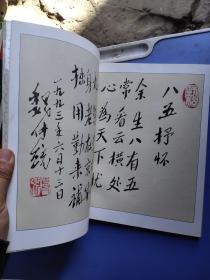 八五抒怀
余生八有五
常看云横处
心为天下忧
身老
拙用勤来补
一九九三年六月十二日
魏传统